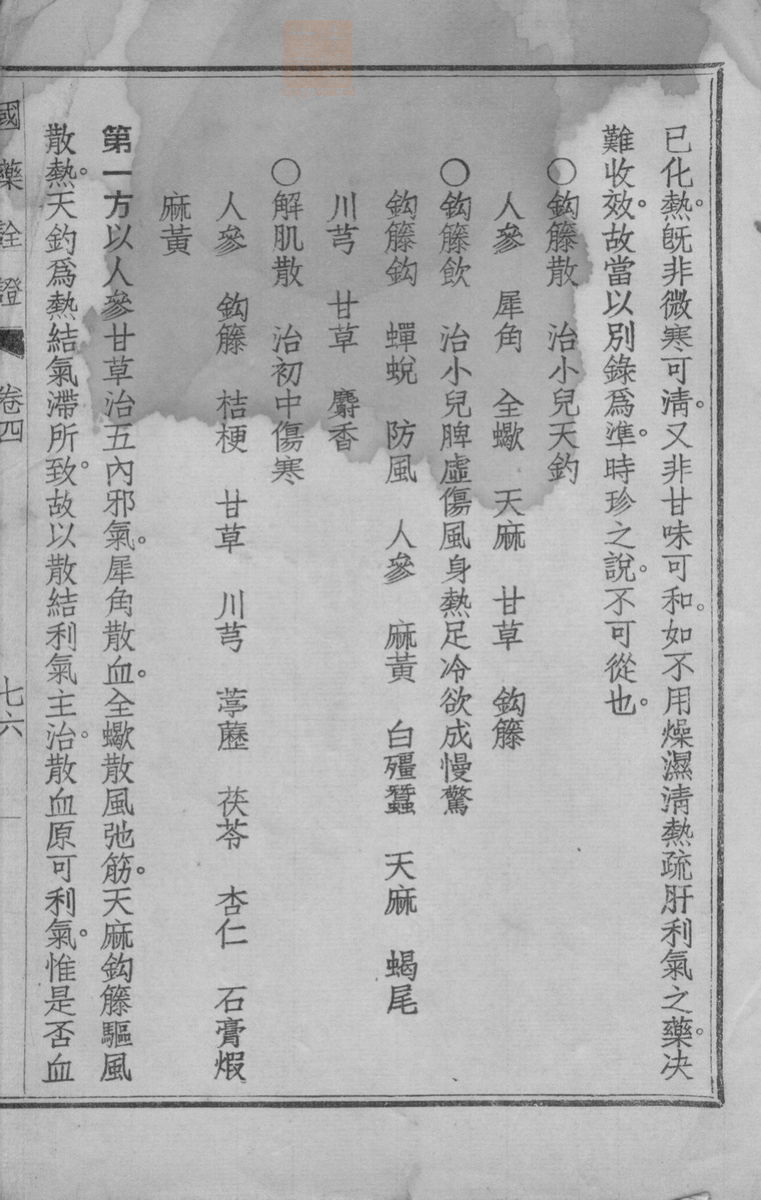 已化熱。既非微寒可淸。又非甘味可和。如不用燥濕淸熱疏肝利氣之藥。决
難收效。故當以別錄爲準。時珍之說。不可從也。
○鈎籐散　治小兒天釣
人參　犀角　全蠍　天麻　甘草　鈎籐
○鈎籐飲　治小兒脾虛傷風身熱足冷欲成慢驚
鈎籐鈎　蟬蛻　防風　人參　麻黃　白殭蠶　天麻　蝎尾
川芎　甘草　麝香
○解肌散　治初中傷寒
人參　鈎籐　桔梗　甘草　川芎　葶藶　茯苓　杏仁　石膏煆
麻黃
第一方以人參甘草治五內邪氣。犀角散血。全蠍散風弛筋。天麻鈎籐驅風
散熱。天釣爲熱結氣滯所致。故以散結利氣主治。散血原可利氣。惟是否血
國藥詮證　卷四　七六